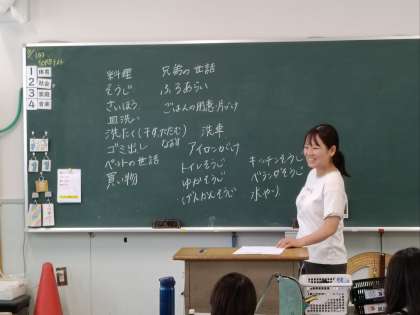 1 体育
2 社会
3 家庭
4 音楽
料理
そうじ
さいほう
皿洗い
洗たく(干す、たたむ)
なおす
ゴミ出し
ペットの世話
買い物
兄弟の世話
ふろあらい
ごはんの用意・片づけ
洗車
アイロンがけ
トイレそうじ
ゆかそうじ
げんかんそうじ
キッチンそうじ
ベランダそうじ
水やり